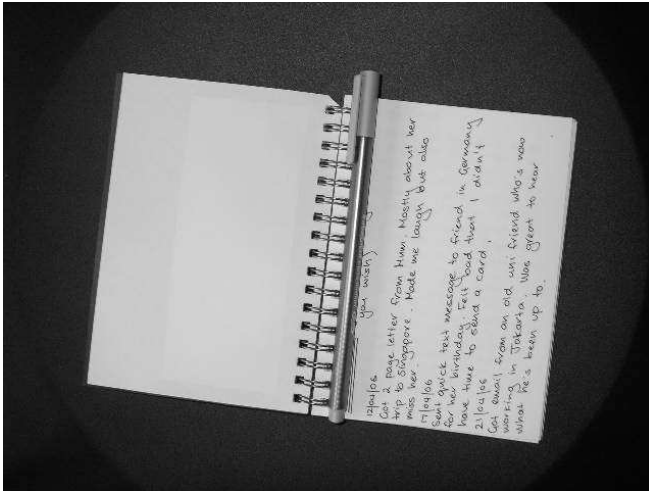 you wish)
12/04/06
Got 2 page letter from Mum. Mostly about her
trip to Singapore. Made me laugh but also
miss her.
17/04/06
Sent quick text message to friend in Germany
for her birthday. Felt bad that I didn't
have time to send a card.
21/04/06
Got email from an old uni friend who's now
working in Jakarta. Was great to hear
what he's been up to.